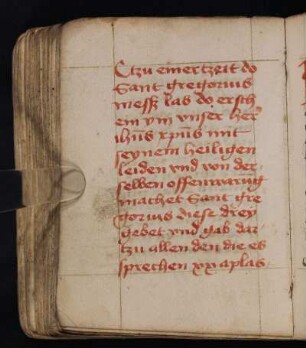 Ctzu einer tzeit do
Sant gregorius
mess las do ersch
ein ym vnser her
ihūs xp̄us mit
seynem heiligen
leiden vnd von der
selben offenwarūg
machet Sant gre
gorius diese drey
gebet vnd gab dar
tzu allen den die es
sprechen xx aplas